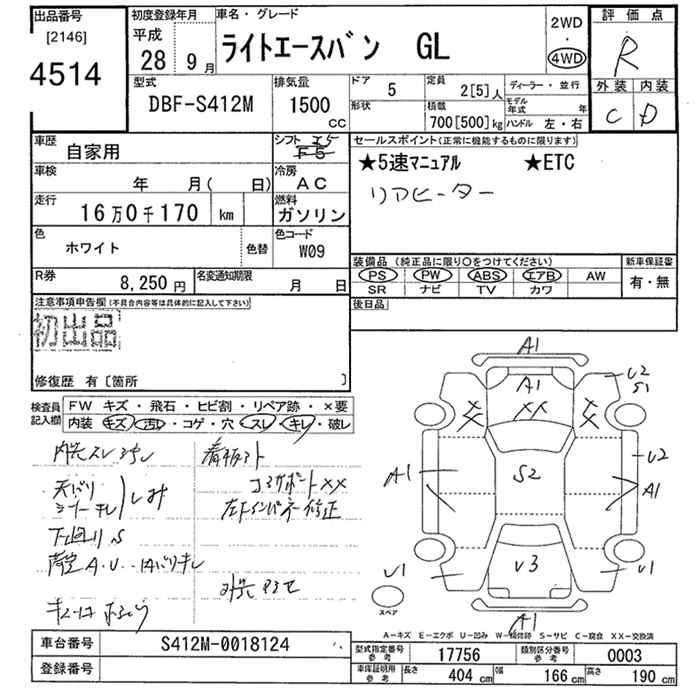 出品番号
[2146]
4514
初度登録年月
平成
28 9月
車名・グレード
ライトエースバン GL
2WD
・
4WD
評価点
R
外装 内装
C D
型式
DBF-S412M
排気量
1500
CC
ドア
5
定員
2[5]人
ディーラー・並行
形状
積載
700[500]kg
モデル年式 年
ハンドル 左・右
車歴
自家用
シフト
I5
F5
セールスポイント(正常に機能するものに限ります)
★5速マニュアル ★ETC
リアヒーター
車検
年 月( 日)
冷房
AC
走行
16万0千170 km
燃料
ガソリン
色
ホワイト
色替
色コード
W09
R券
8,250円
名変通知期限
月 日
装備品(純正品に限り〇をつけてください)
PS PW ABS エアB AW
SR ナビ TV カワ
新車保証書
有・無
後日品
注意事項申告欄(不具合内容等は具体的に記入して下さい)
初出品
修復歴 有〔箇所 〕
検査員記入欄
FW キズ・飛石・ヒビ割・リペア跡・×要
内装 キズ・汚れ・コゲ・穴・スレ・キレ・破レ
天バリ
しみ
下回りS
コアサポートXX
左右インパネ修正
A1
A1
XX
XX
XX
U2
S1
A1
S2
U2
A1
U1
V3
U1
A1
スペア
A-キズ E-エクボ U-凹み W-補修跡 S-サビ C-腐食 XX-交換済
車台番号
S412M-0018124
登録番号
型式指定番号
参考
17756
類別区分番号
参考
0003
車庫証明用
参考
長さ
404 cm
幅
166 cm
高さ
190 cm